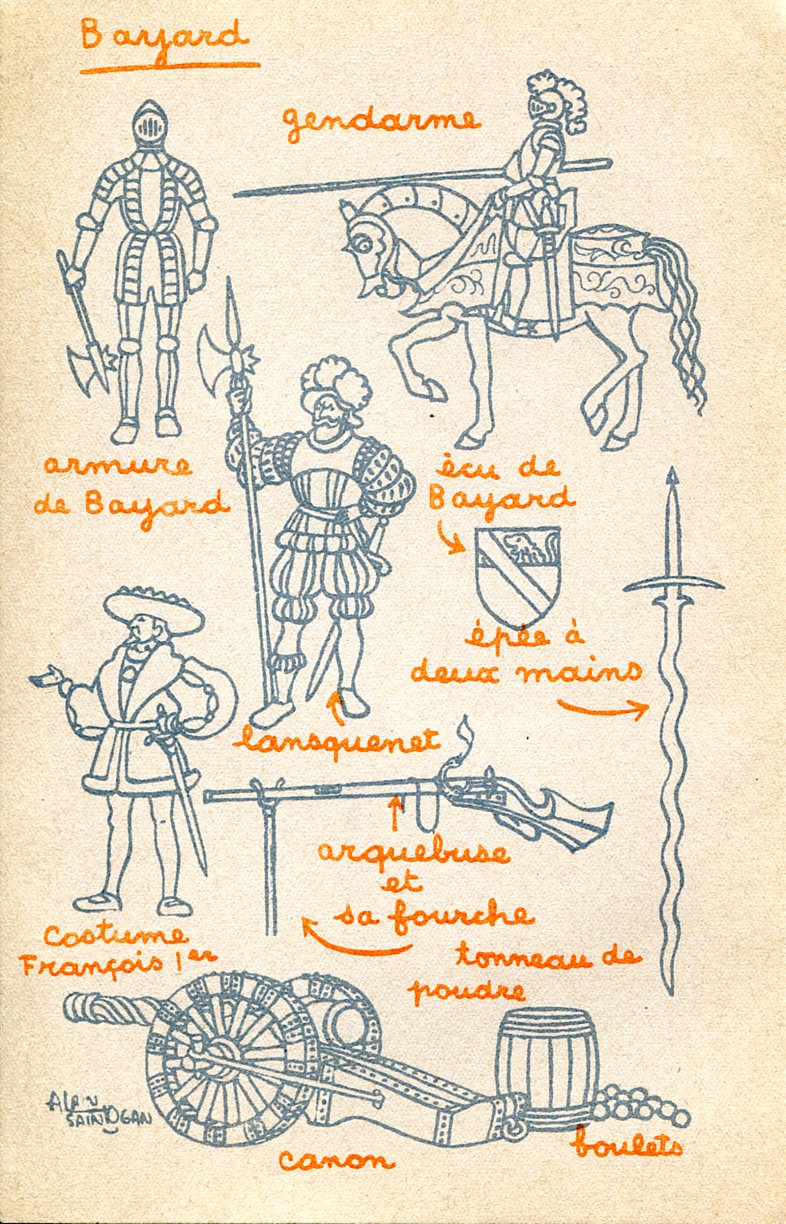 Bayard
gendarme
armure
de Bayard
écu de
Bayard
épée à
deux mains
lansquenet
arquebuse
et
sa fourche
costume
François 1er
tonneau de
poudre
canon
boulets
ALAIN
SAINT OGAN